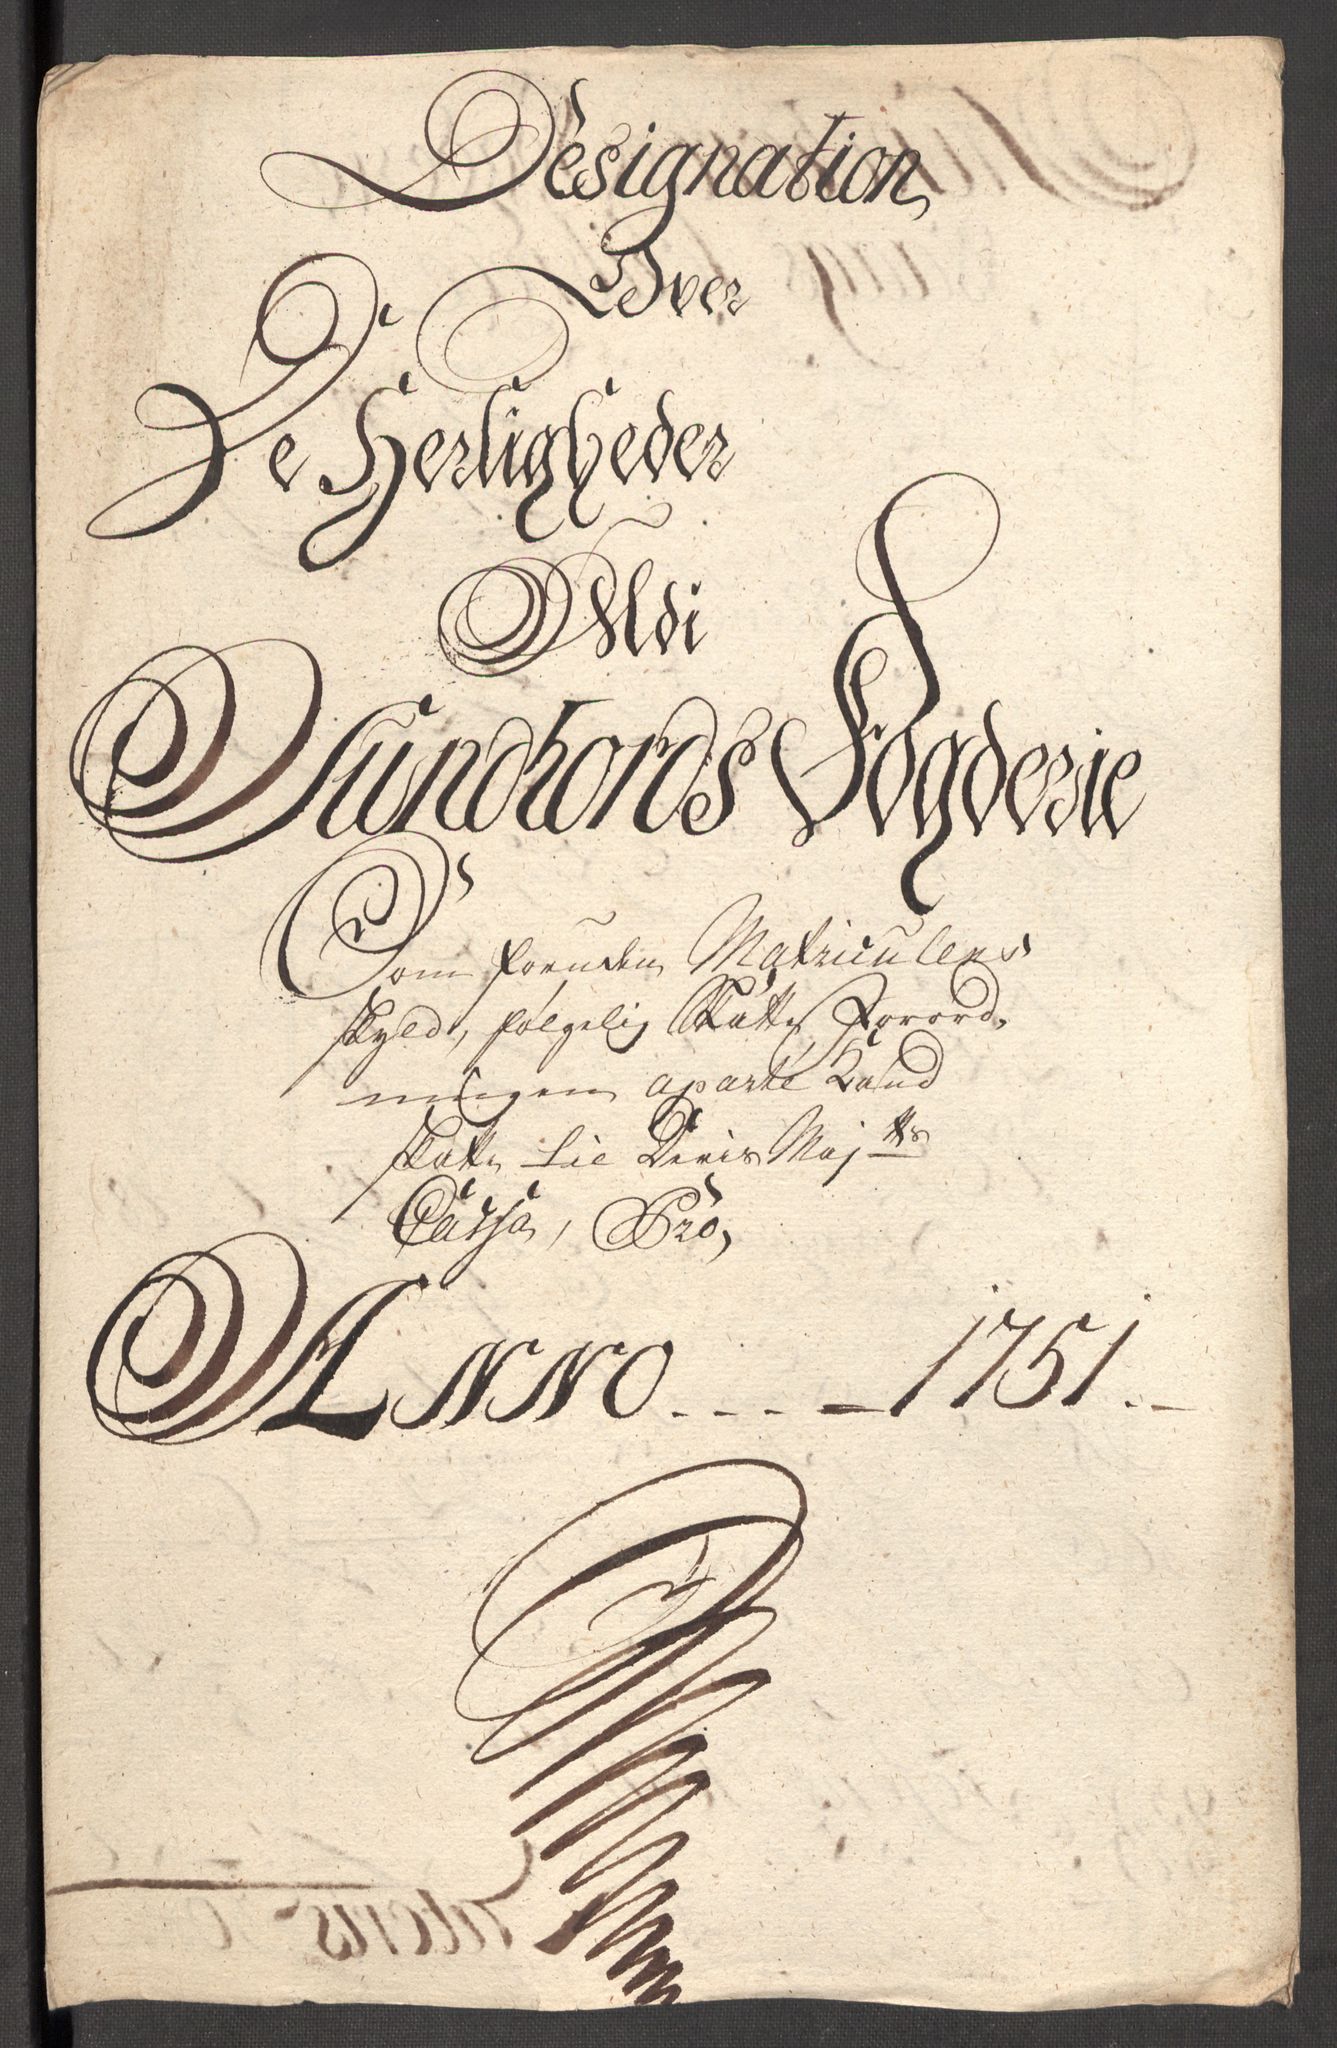 Designation
Over
De Herligheder
Udi
Sundhords Fogderie
Som foruden Matriculens
skyld, følgelig Skatte Forord-
ningen aparte
skatte til Deris Maj<sup>tts</sup>
Cassa, Pro,
Anno - - - - 1751. -